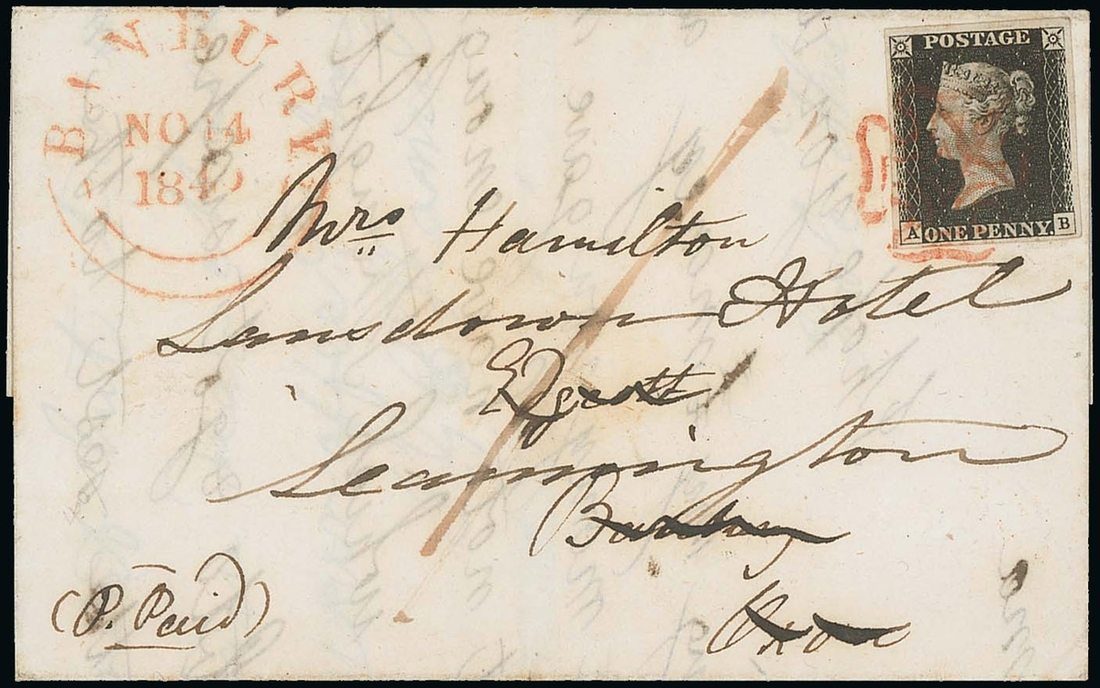 BANBURY
NO 14
1840
POSTAGE
A ONE PENNY B
Mrs Hamilton
Lansdown Hotel
Leamington
Banbury
Oxon
(P. Paid)